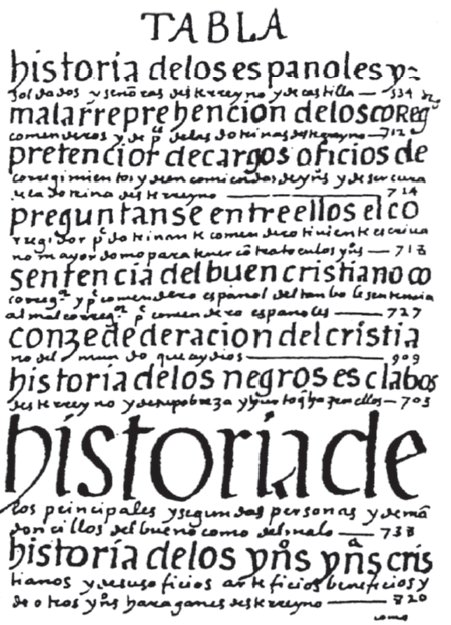 TABLA
historia delos es panoles y
soldados y señoras destereyno y de castilla — 534
mala r̃reprehencion delos coReg
comenderos y de p.e delas dotrinas destereyno — 712
pretencior de cargos oficios de
coregimientos y de en comiendas de yn̄s y deser cura
dela dotrina destereyno — 714
preguntanse entre ellos el co
rregidor p.e dotrinante comendero tiniente escriua
no mayordomo para tener contrato culos yn̄s — 718
sentencia del buen cristiano co
coregr y p.e comendero espanol del tanbo le sentencia
al mal coregr p.e comendero espanoles — 727
conzederacion del cristia
no del mundo que ay dios — 909
historia delos negros esclabos
destereyno y desu pobreza y — 703
historia de
los principales y segundas personas y de mā
doncillos del bueno como del malo — 738
historia delos yn̄s yn̄as cris
tianos y desus oficios arteficios beneficios y
de otros yn̄s haraganes destereyno — 820
como